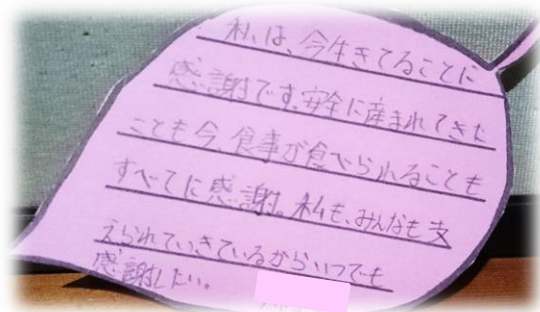 私は、今生きてることに
感謝です。安全に産まれてきた
ことも今、食事が食べられることも
すべてに感謝。私も、みんなも支
えられていきているからいつでも
感謝したい。